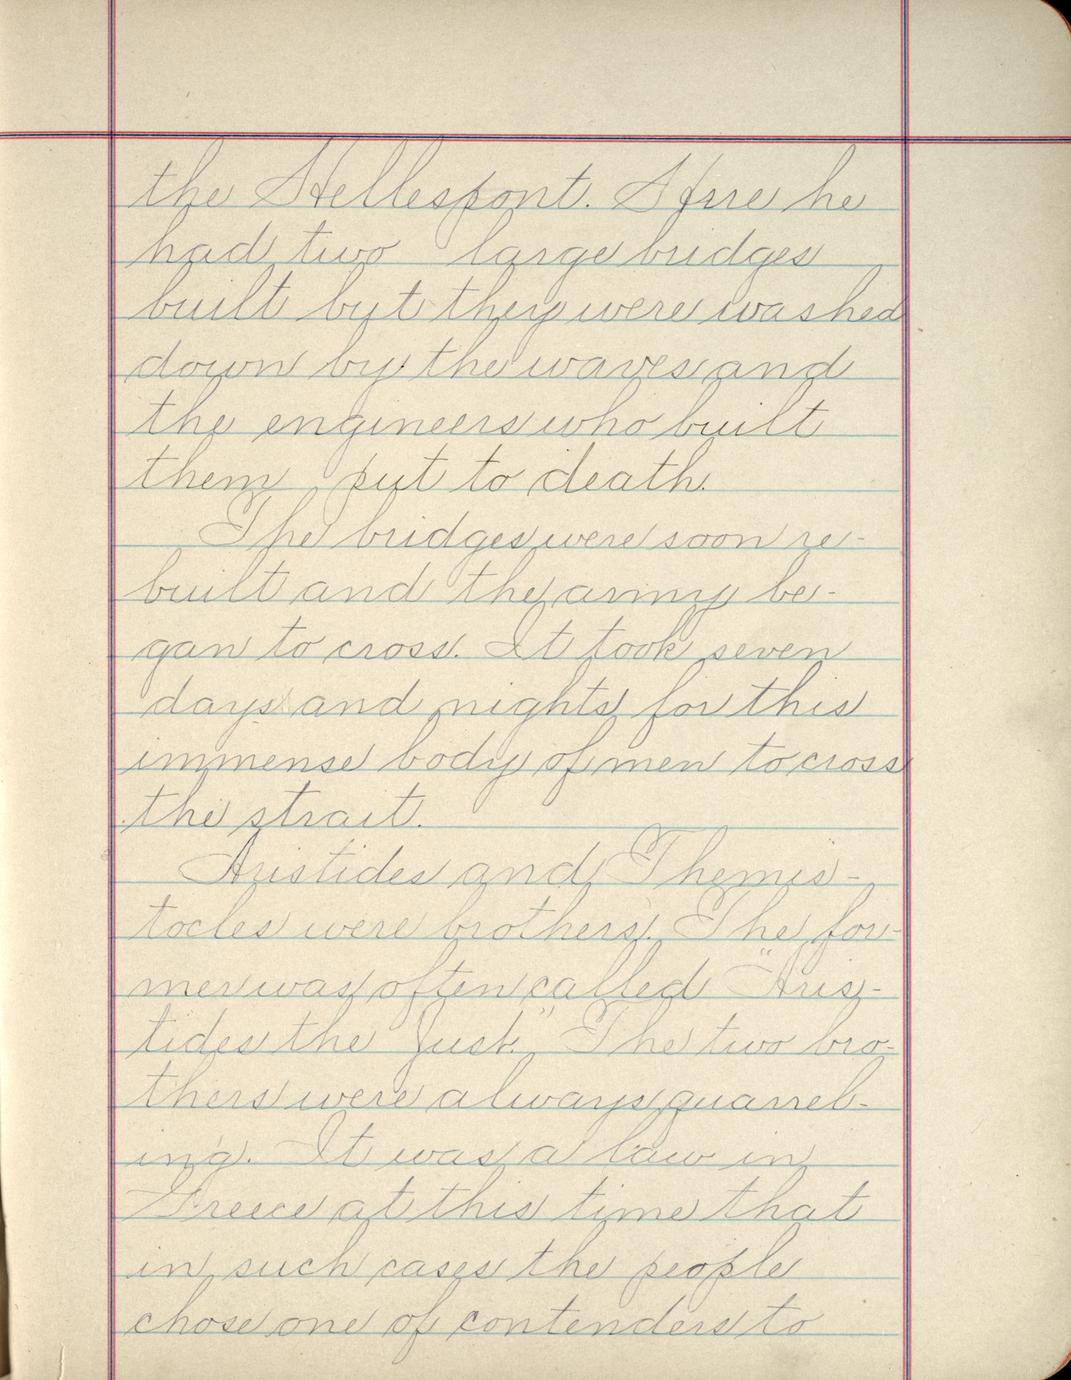 the Hellespont. Here he
had two large bridges
built but they were washed
down by the waves and
the engineers who built
them put to death.
The bridges were soon re-
built and the army be-
gan to cross. It took seven
days and nights for this
immense body of men to cross
the strait.
Aristides and Themis-
tocles were brothers. The for-
mer was often called "Aris-
tides the Just." The two bro-
thers were always quarrel-
ing. It was a law in
Greece at this time that
in such cases the people
chose one of contenders to